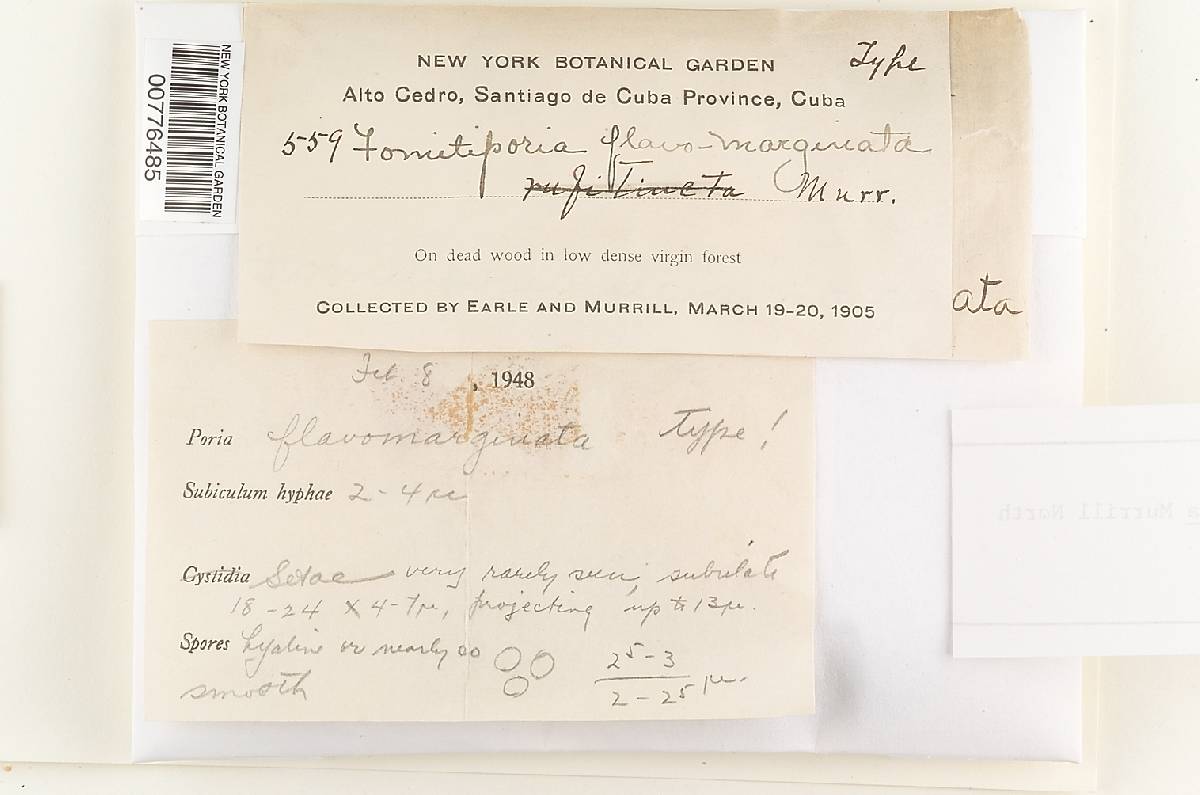 NEW YORK BOTANICAL GARDEN
00776485
NEW YORK BOTANICAL GARDEN Type
Alto Cedro, Santiago de Cuba Province, Cuba
559 Fomitiporia flavo-marginata
rufitincta Murr.
On dead wood in low dense virgin forest
COLLECTED BY EARLE AND MURRILL, MARCH 19-20, 1905
ata
Feb 8, 1948
Poria flavomarginata Type!
Subiculum hyphae 2-4 µ
Cystidia Setae very rarely seen, subulate
18-24 x 4-7µ, projecting up to 13µ.
Spores hyaline or nearly so
smooth
2⁵-3
2-2⁵ µ.
a Murrill North